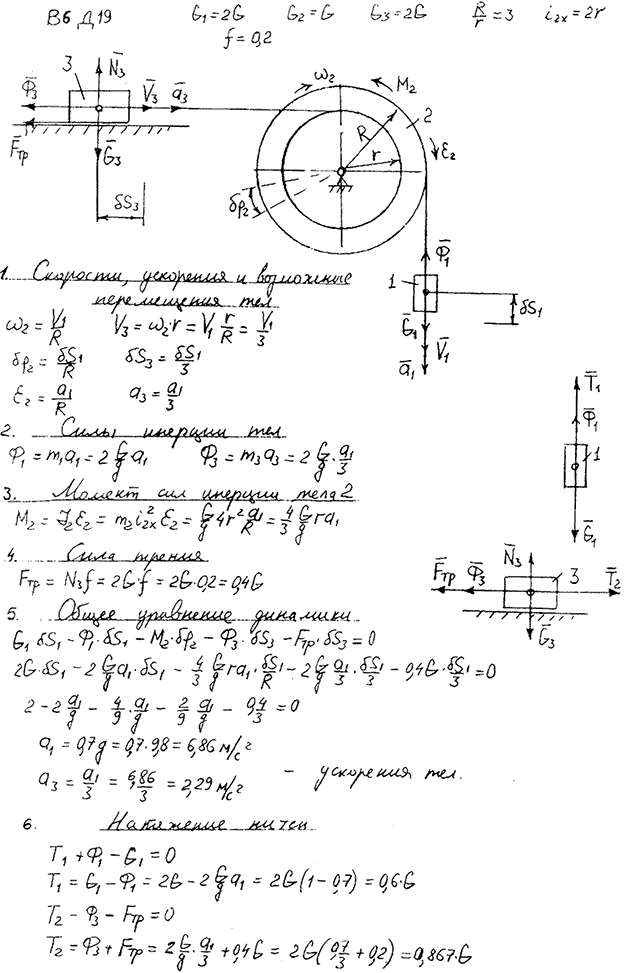 В6 Д19 G₁=2G G₂=G G₃=2G R/r=3 i₂ₓ=2r
f=0,2
N̄₃
3
ω₂
M₂
Φ̄₃ V̄₃ ā₃
2
R
F̄тр
Ḡ₃
r
ε₂
δS₃
δφ₂
Φ̄₁
1
δS₁
Ḡ₁
V̄₁
ā₁
1. Скорости, ускорения и возможные
перемещения тел
ω₂ = V₁/R V₃ = ω₂·r = V₁ r/R = V₁/3
δφ₂ = δS₁/R δS₃ = δS₁/3
ε₂ = a₁/R a₃ = a₁/3
T̄₁
Φ̄₁
1
Ḡ₁
2. Силы инерции тел
Φ₁ = m₁a₁ = 2 G/g a₁ Φ₃ = m₃a₃ = 2 G/g · a₁/3
3. Момент сил инерции тела 2
M₂ = J₂ε₂ = m₂i²₂ₓ ε₂ = G/g 4r² a₁/R = 4/3 G/g r a₁
N̄₃
F̄тр Φ̄₃ 3 T̄₂
Ḡ₃
4. Сила трения
Fтр = N₃f = 2G·f = 2G·0,2 = 0,4G
5. Общее уравнение динамики
G₁·δS₁ − Φ₁·δS₁ − M₂·δφ₂ − Φ₃·δS₃ − Fтр·δS₃ = 0
2G·δS₁ − 2 G/g a₁·δS₁ − 4/3 G/g r a₁·δS₁/R − 2 G/g a₁/3·δS₁/3 − 0,4G·δS₁/3 = 0
2 − 2 a₁/g − 4/9·a₁/g − 2/9 a₁/g − 0,4/3 = 0
a₁ = 0,7g = 0,7·9,8 = 6,86 м/с²
a₃ = a₁/3 = 6,86/3 = 2,29 м/с² – ускорения тел.
6. Натяжение нитей
T₁ + Φ₁ − G₁ = 0
T₁ = G₁ − Φ₁ = 2G − 2 G/g a₁ = 2G(1 − 0,7) = 0,6·G
T₂ − Φ₃ − Fтр = 0
T₂ = Φ₃ + Fтр = 2 G/g · a₁/3 + 0,4G = 2G(0,7/3 + 0,2) = 0,867·G